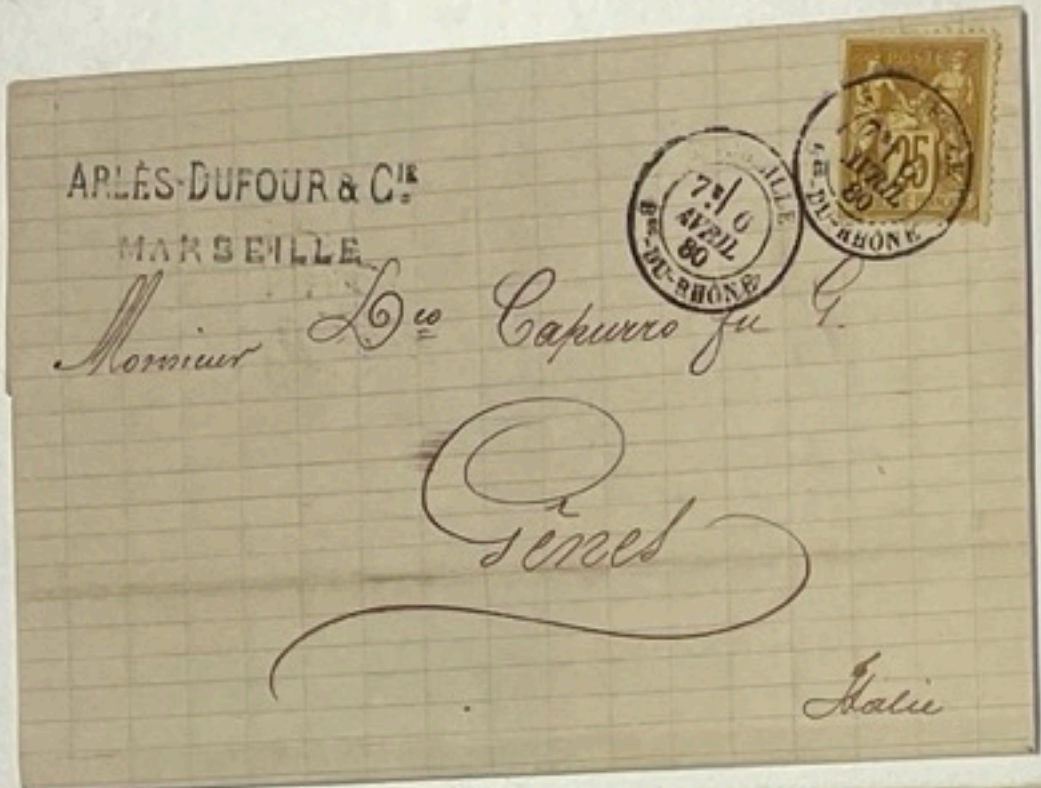 ARLÈS-DUFOUR & CIE
MARSEILLE
MARSEILLE
7E/ 6
AVRIL
80
BES-DU-RHÔNE
POSTE
25
AVRIL
80
DU-RHÔNE
Monsieur Dco Capurro fu G.
Gênes
Italie